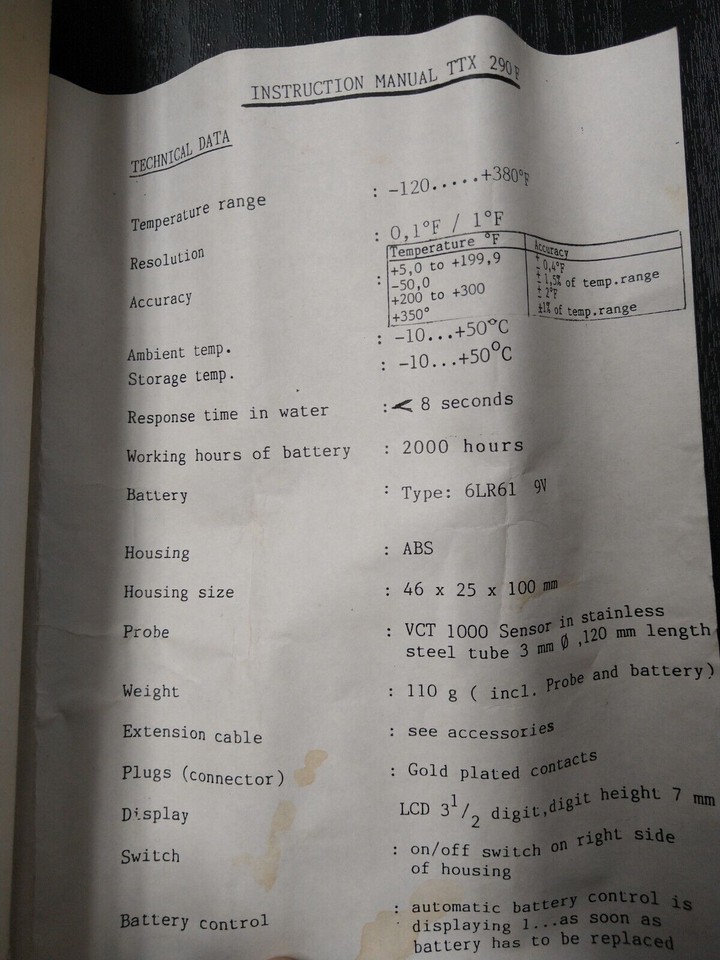 INSTRUCTION MANUAL TTX 290F
TECHNICAL DATA
Temperature range : -120.....+380°F
Resolution : 0,1°F / 1°F
Accuracy :
Temperature °F Accuracy
+5,0 to +199,9 ± 0,4°F
-50,0 ± 1,5% of temp.range
+200 to +300 ± 2°F
+350° ±1% of temp.range
Ambient temp. : -10...+50°C
Storage temp. : -10...+50°C
Response time in water :< 8 seconds
Working hours of battery : 2000 hours
Battery : Type: 6LR61 9V
Housing : ABS
Housing size : 46 x 25 x 100 mm
Probe : VCT 1000 Sensor in stainless
steel tube 3 mm Ø ,120 mm length
Weight : 110 g ( incl. Probe and battery)
Extension cable : see accessories
Plugs (connector) : Gold plated contacts
Display LCD 3 1/2 digit,digit height 7 mm
Switch : on/off switch on right side
of housing
Battery control : automatic battery control is
displaying 1...as soon as
battery has to be replaced